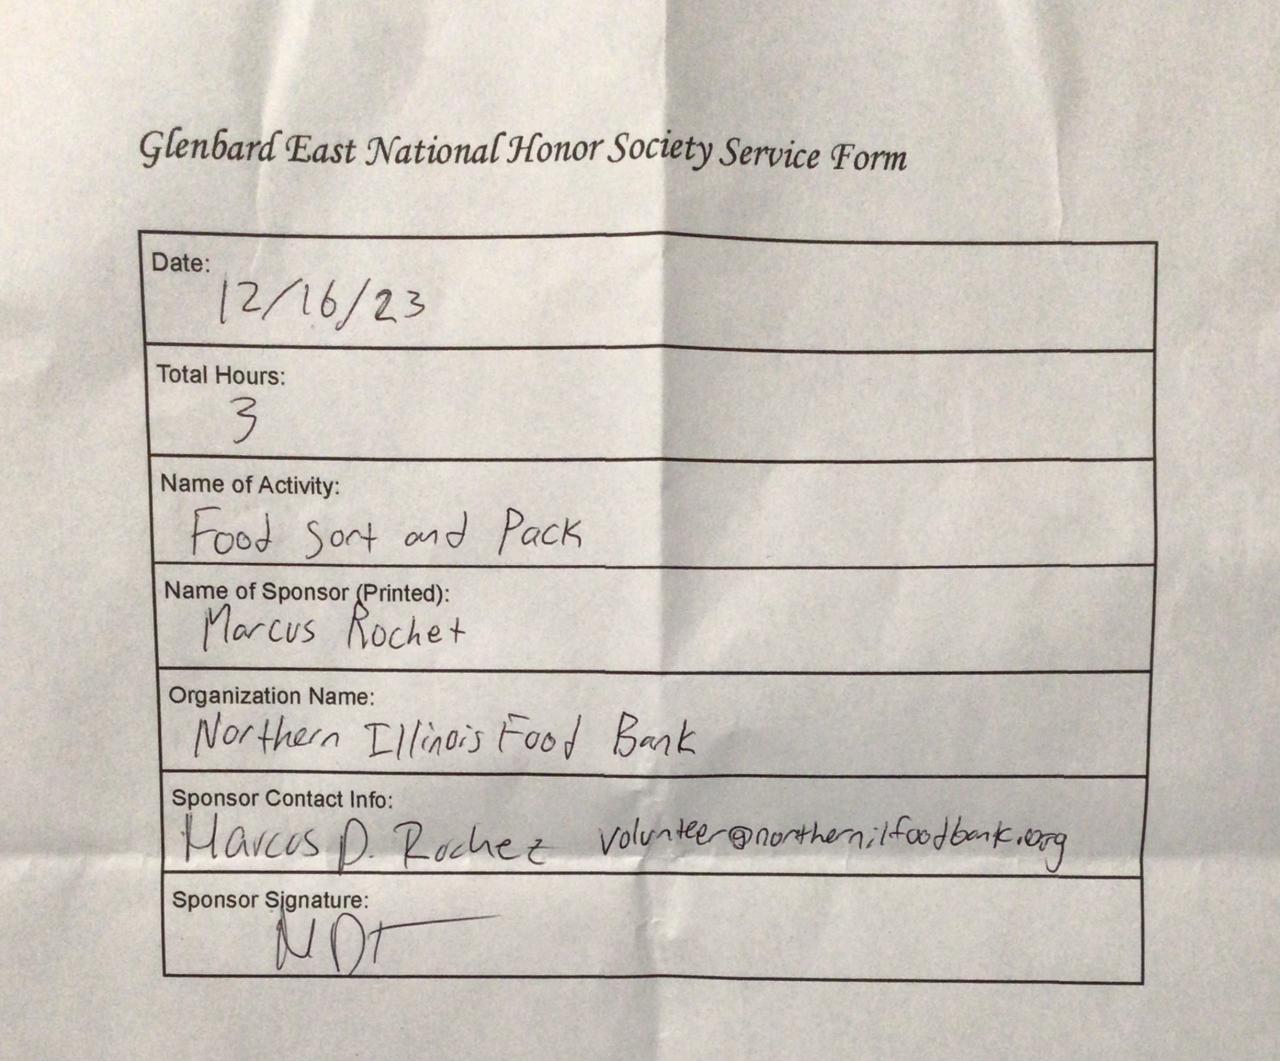 Glenbard East National Honor Society Service Form
Date:
12/16/23
Total Hours:
3
Name of Activity:
Food Sort and Pack
Name of Sponsor (Printed):
Marcus Rochet
Organization Name:
Northern Illinois Food Bank
Sponsor Contact Info:
Marcus D. Rochez volunteer@northernilfoodbank.org
Sponsor Signature: